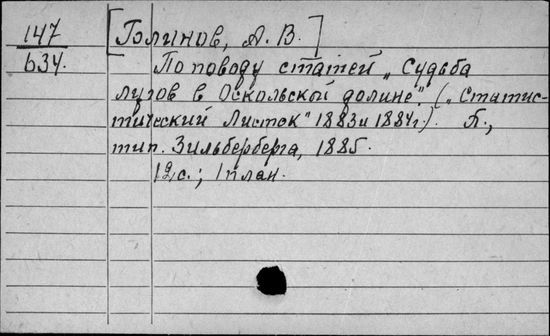 147
634.
[Голинов, А. В.]
По поводу статей „Судьба
лугов в Оскольской долине." („Статис-
тический Листок" 1883 и 1884 г.). Х.,
тип. Зильберберга, 1885.
12 с.; 1 план.